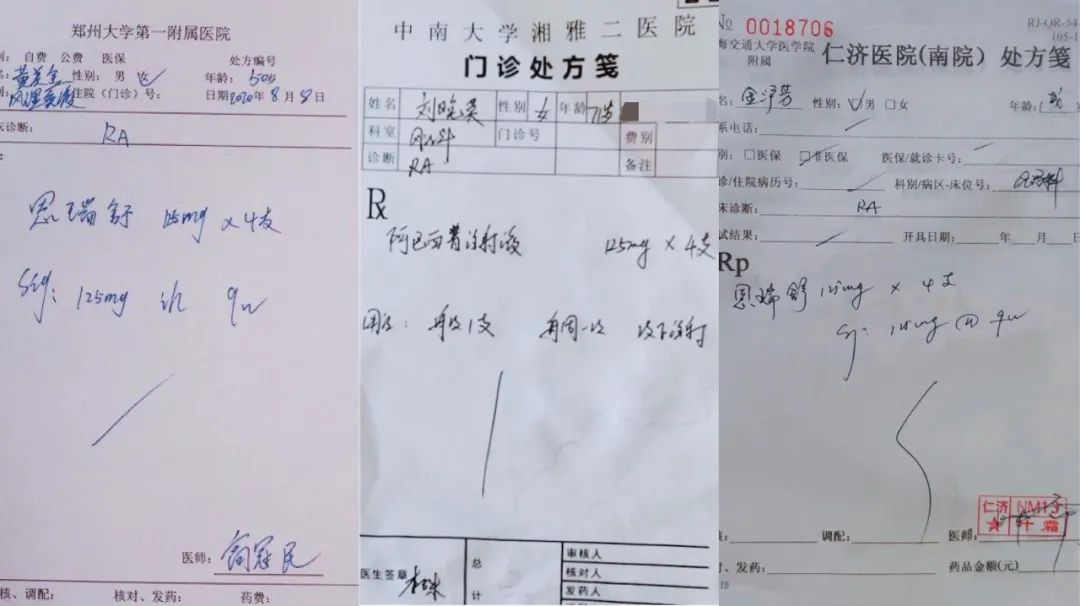 郑州大学第一附属医院
自费 公费 医保 处方编号
性别: 男 女 年龄: 50岁
住院（门诊）号: 日期2020年8月8日
床诊断:
RA
恩瑞舒 125mg x 4支
Sig: 125mg ih qw
医师:
核、调配: 核对、发药: 药费:
中南大学湘雅二医院
门诊处方笺
姓名 刘晓英 性别 女 年龄 71岁
科室 风湿科 门诊号 费别
诊断 RA 备注
Rx
阿巴西普注射液 125mg x 4支
用法: 每次1支 每周一次 皮下注射
医生签章 总计 审核人
核对人
发药人
№ 0018706 RJ-QR-54
105-1
海交通大学医学院附属 仁济医院(南院) 处方笺
名: 性别: 男 女 年龄:
系电话:
别: 医保 非医保 医保/就诊卡号:
诊/住院病历号: 科别/病区-床位号:
床诊断: RA
试结果: 开具日期: 年 月 日
Rp
恩瑞舒 125mg x 4支
Sig: 125mg qw
仁济 NM13
调配: 医师:
对、发药: 药品金额(元)